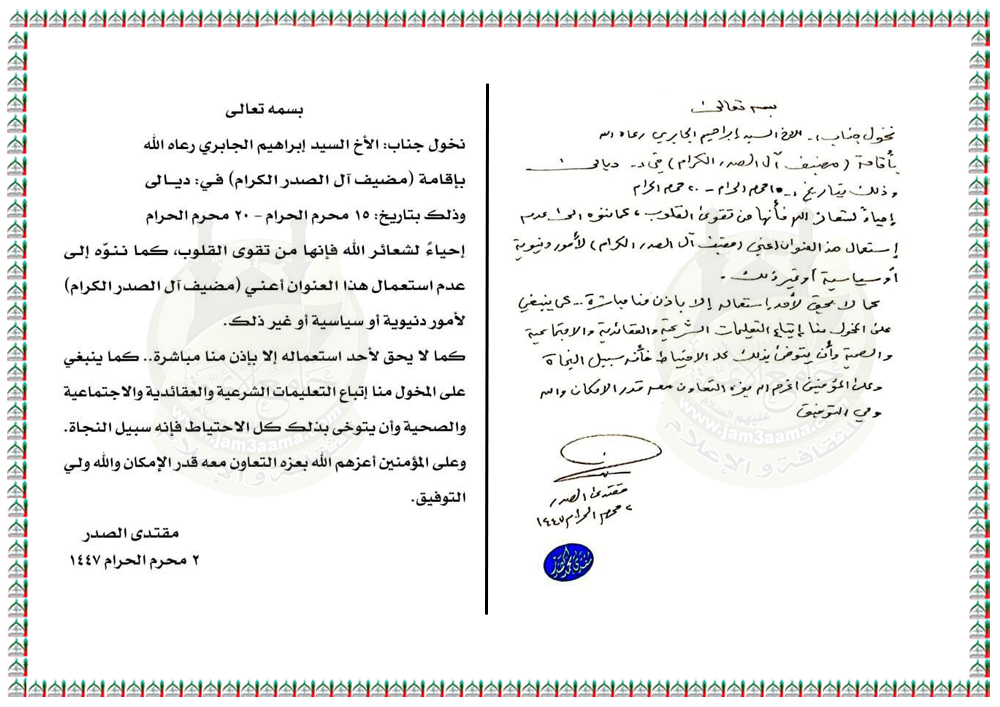 بسمه تعالى
نخول جناب:ـ الاخ السيد إبراهيم الجابري رعاه الله
بأقامة (مضيف آل الصدر الكرام) في:ـ ديالى
وذلك بتاريخ:ـ ١٥ محرم الحرام - ٢٠ محرم الحرام
إحياءً لشعائر الله فأنها من تقوى القلوب، كما ننوه الى عدم
إستعمال هذا العنوان أعني (مضيف آل الصدر الكرام) لأمور دنيوية
أو سياسية أو غير ذلك.
كما لا يحق لأحد إستعماله إلا بإذن منا مباشرة... كما ينبغي
على المخول منا إتباع التعليمات الشرعية والعقائدية والاجتماعية
والصحية وأن يتوخى بذلك كل الاحتياط فأنه سبيل النجاة
وعلى المؤمنين اعزهم الله بعزه التعاون معه قدر الامكان والله
ولي التوفيق
مقتدى الصدر
٢ محرم الحرام ١٤٤٧
بسمه تعالى
نخول جناب: الأخ السيد إبراهيم الجابري رعاه الله
بإقامة (مضيف آل الصدر الكرام) في: ديـالى
وذلك بتاريخ: ١٥ محرم الحرام - ٢٠ محرم الحرام
إحياءً لشعائر الله فإنها من تقوى القلوب، كما ننوّه إلى
عدم استعمال هذا العنوان أعني (مضيف آل الصدر الكرام)
لأمور دنيوية أو سياسية أو غير ذلك.
كما لا يحق لأحد استعماله إلا بإذن منا مباشرة.. كما ينبغي
على المخول منا إتباع التعليمات الشرعية والعقائدية والاجتماعية
والصحية وأن يتوخى بذلك كل الاحتياط فإنه سبيل النجاة.
وعلى المؤمنين أعزهم الله بعزه التعاون معه قدر الإمكان والله ولي
التوفيق.
مقتدى الصدر
٢ محرم الحرام ١٤٤٧
www.jam3aama.com
للثقافة و الإعلام